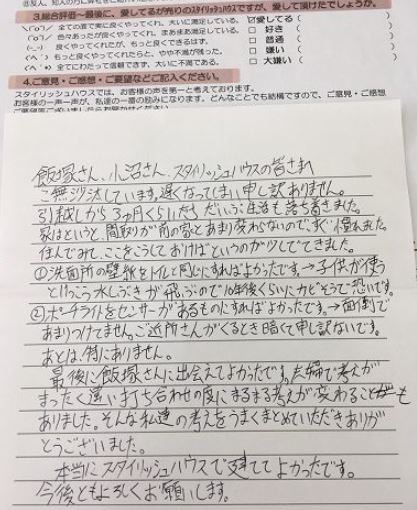 3.総合評価～最後に、愛してるが売りのスタイリッシュハウスですが、愛して頂けたでしょうか。
＼(^o^)／ 全ての面で実に良くやってくれ、大いに満足している。 ☑愛してる
＼(^o^)／ 色々あったが良くやってくれ、まあまあ満足している。 □ 好き
(-_-) 良くやってくれたが、もっと良くできるはず。 □ 普通
もっと良くやってくれたらと、やや不満が残った。 □ 嫌い
全てにわたって信頼できず、大いに不満である。 □ 大嫌い
4.ご意見・ご感想・ご要望などご記入ください。
スタイリッシュハウスでは、お客様の声を第一と考えております。
お客様の一声一声が、私達の一番の励みになります。どんなことでも結構ですので、ご意見・ご感想
飯塚さん、小沼さん、スタイリッシュハウスの皆さまへ
ご無沙汰しています。遅くなってしまい申し訳ありません。
引越しから3ヵ月くらいたち、だいぶ生活も落ち着きました。
家はというと、間取りが前の家とあまり変わらないので、すぐ慣れました。
住んでみて、ここをこうしておけばというのが少しでてきました。
①洗面所の壁紙をトイレと同じにすればよかったです。→子供が使う
とけっこう水しぶきが飛ぶので10年後くらいにカビそうで恐いです。
②ポーチライトをセンサーがあるものにすればよかったです。→面倒で
あまりつけてません。ご近所さんがくるとき暗くて申し訳ないです。
あとは、特にありません。
最後に飯塚さんに出会えてよかったです。夫婦で考えが
まったく違い打ち合わせの度にまるまる考えが変わることも
ありました。そんな私達の考えをうまくまとめていただきありが
とうございました。
本当にスタイリッシュハウスで建ててよかったです。
今後ともよろしくお願いします。